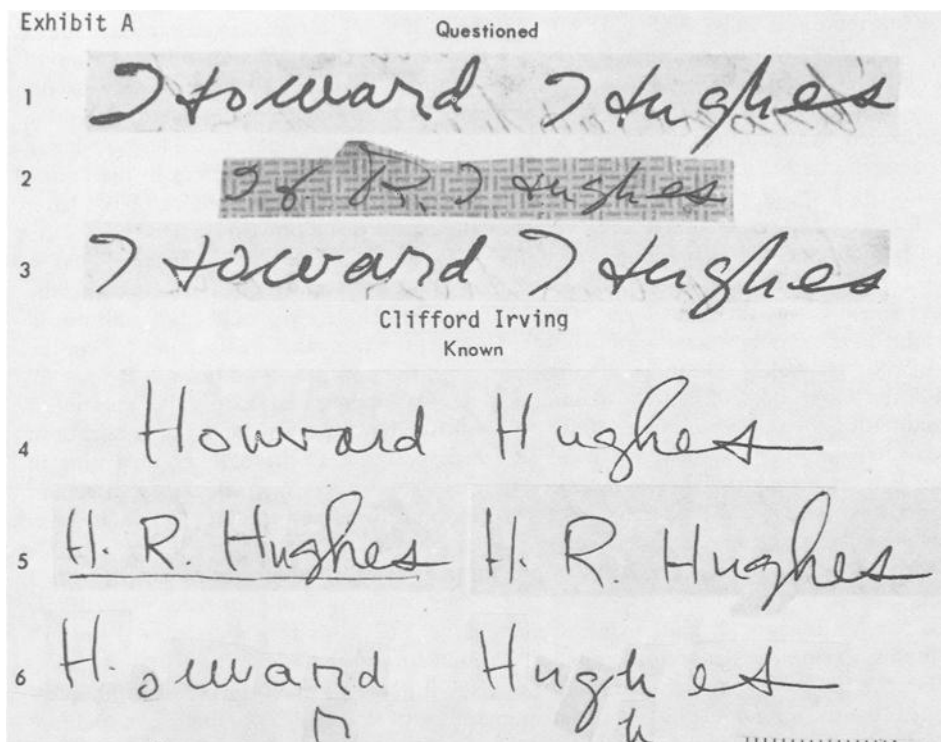 Exhibit A
Questioned
1 Howard Hughes
2 H. R. Hughes
3 Howard Hughes
Clifford Irving
Known
4 Howard Hughes
5 H. R. Hughes H. R. Hughes
6 H. oward Hugh es
h